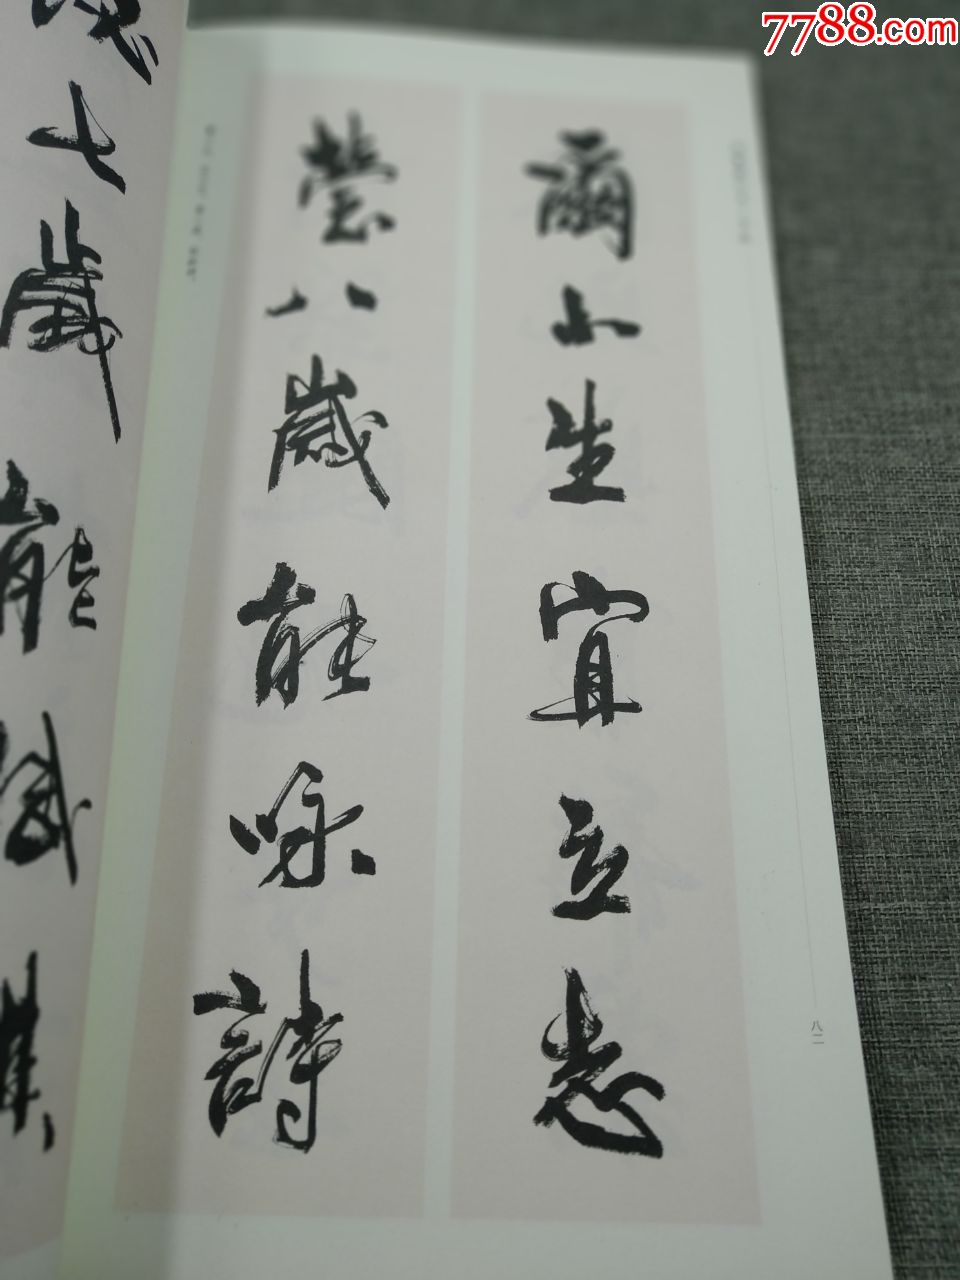 7788.com
爾小生宜立志
瑩八歲能咏詩
七歲能賦棋
八二